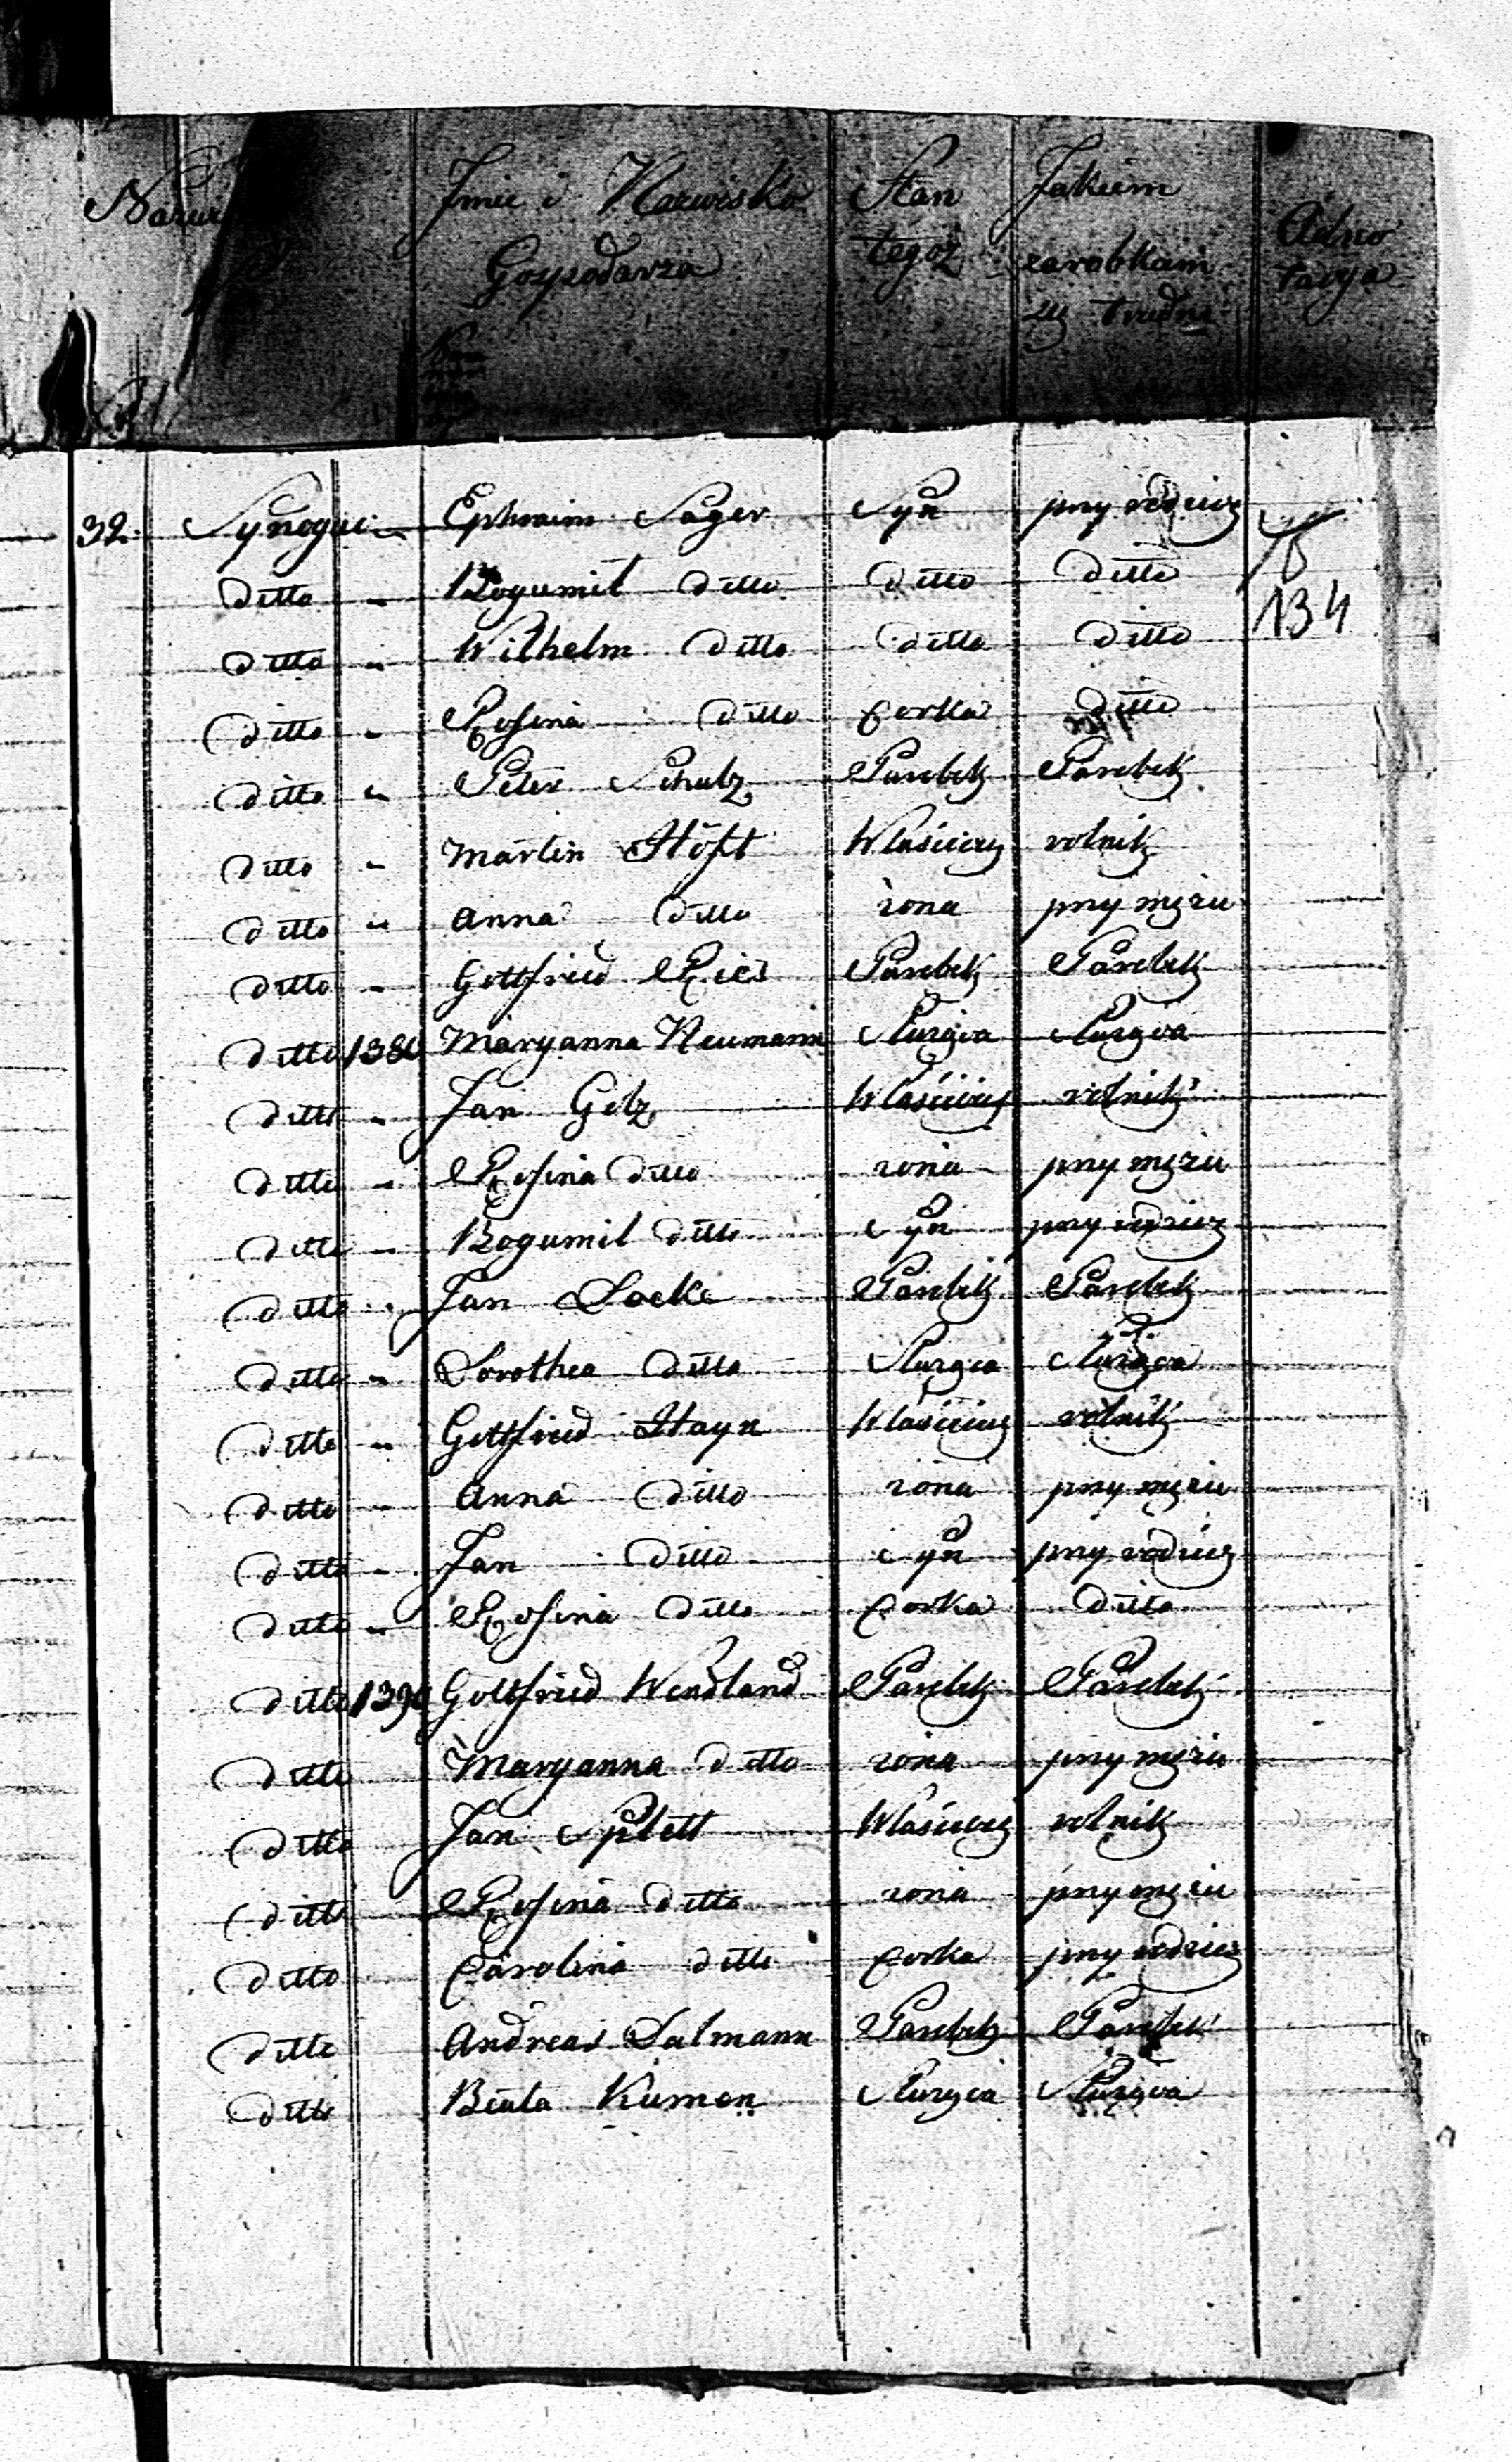 Imie i Nazwisko Gospodarza Stan tegoż Jakiem zarobkiem się trudni Adnotacya
32. Synogac - Ephraim Sager Syn przy rodzicz
ditto - Bogumil ditto ditto ditto
134
ditto - Wilhelm ditto ditto ditto
ditto - Rosina ditto corka ditto
ditto - Peter Schulz Parobek Parobek
ditto - Martin Höft Właściciel rolnik
ditto - Anna ditto żona przy mężu
ditto - Gottfried Ries Parobek Parobek
ditto 1380 Maryanna Neumann Sluząca Sluząca
ditto - Jan Gelz Właściciel rolnik
ditto - Rosina ditto żona przy mężu
ditto - Bogumil ditto Syn przy rodzicz
ditto - Jan Docke Parobek Parobek
ditto - Dorothea ditto Sluząca Sluząca
ditto - Gottfried Hayn Właściciel rolnik
ditto - Anna ditto żona przy mężu
ditto - Jan ditto Syn przy rodzicz
ditto - Rosina ditto corka ditto
ditto 1390 Gottfried Wendland Parobek Parobek
ditto Maryanna ditto żona przy mężu
ditto Jan Splett Właściciel rolnik
ditto Rosina ditto żona przy mężu
ditto Carolina ditto corka przy rodzicz
ditto Andreas Dalmann Parobek Parobek
ditto Beata Kumon Sluząca Sluząca